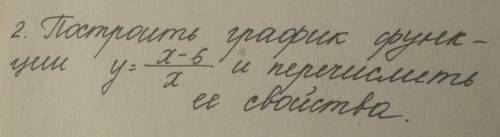 2. Построить график функ-
ции y = x-6/x и перечислить
ее свойства.